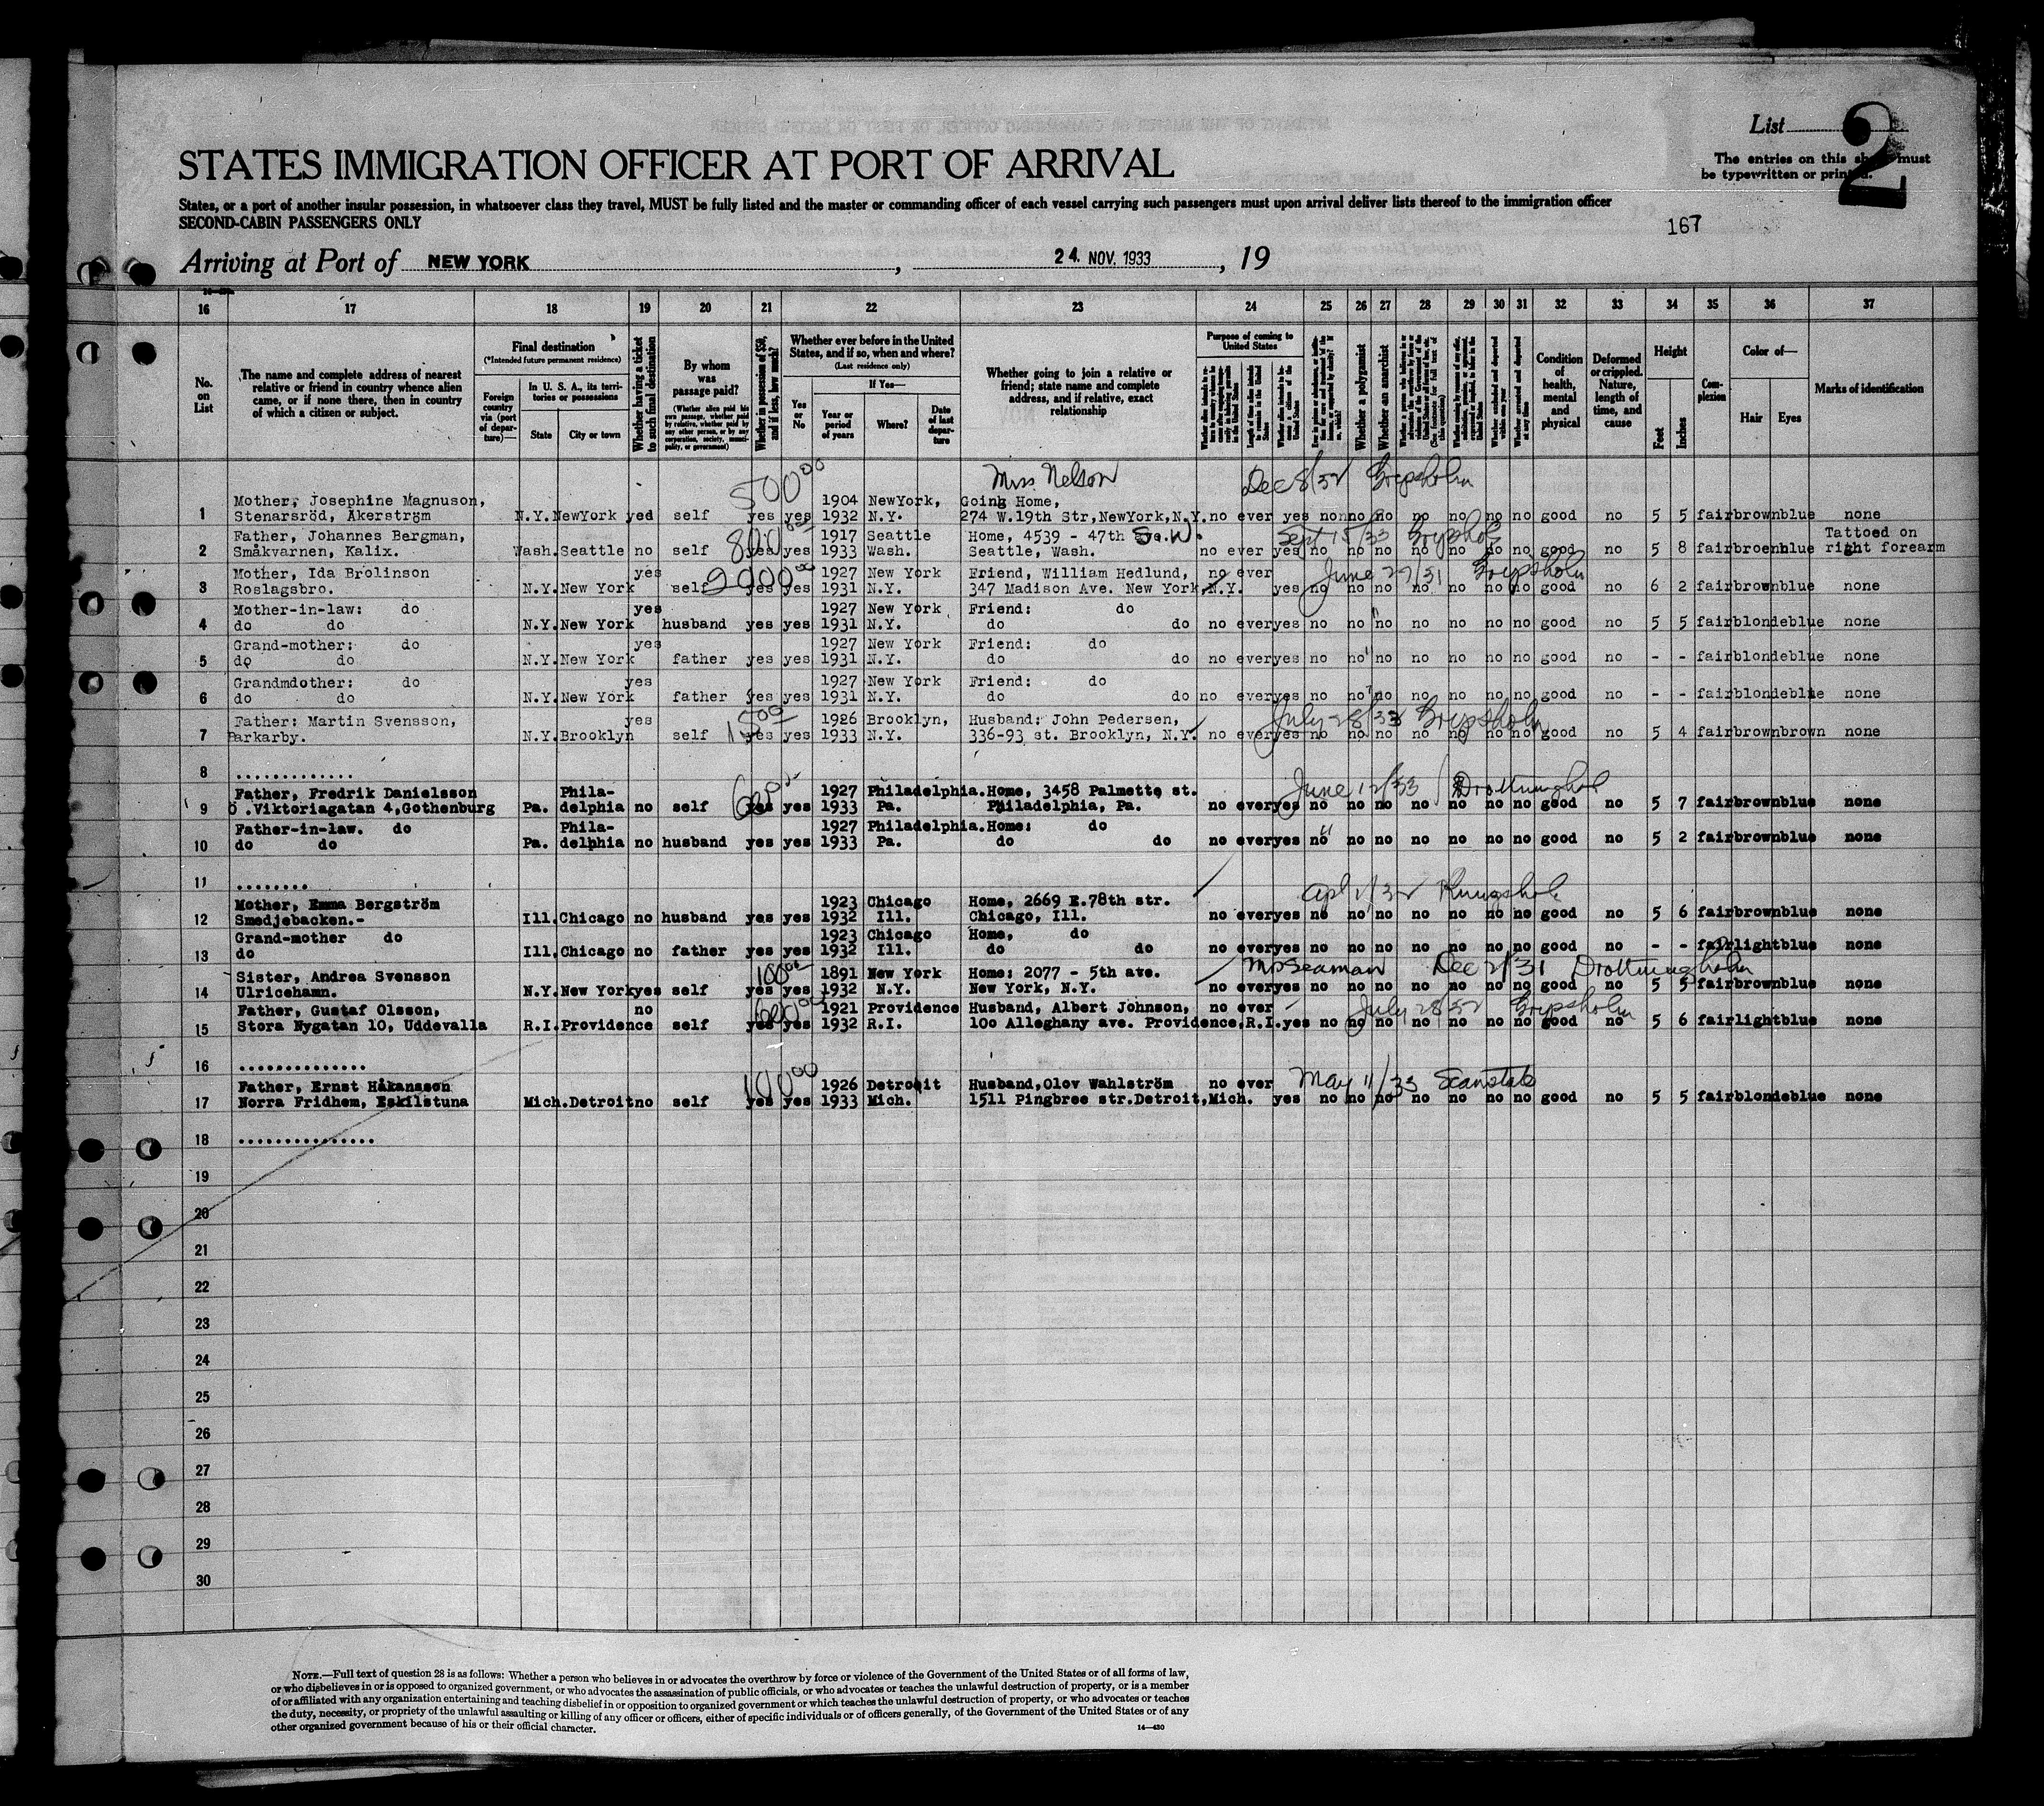 List
2
The entries on this sheet must
be typewritten or printed.
STATES IMMIGRATION OFFICER AT PORT OF ARRIVAL
States, or a port of another insular possession, in whatsoever class they travel, MUST be fully listed and the master or commanding officer of each vessel carrying such passengers must upon arrival deliver lists thereof to the immigration officer
SECOND-CABIN PASSENGERS ONLY
167
Arriving at Port of NEW YORK, 24. NOV. 1933, 19
16 17 18 19 20 21 22 23 24 25 26 27 28 29 30 31 32 33 34 35 36 37
No. on List
The name and complete address of nearest relative or friend in country whence alien came, or if none there, then in country of which a citizen or subject.
Final destination
(*Intended future permanent residence)
Foreign country via (port of departure)—
In U. S. A., its territories or possessions
State
City or town
Whether having a ticket to such final destination
By whom was passage paid?
(Whether alien paid his own passage, whether paid by relative, whether paid by any other person, or by any corporation, society, municipality, or government)
Whether in possession of $50, and if less, how much?
Whether ever before in the United States, and if so, when and where?
(Last residence only)
Yes or No
If Yes—
Year or period of years
Where?
Date of last departure
Whether going to join a relative or friend; state name and complete address, and if relative, exact relationship
Purpose of coming to United States
Whether a polygamist
Whether an anarchist
Whether excluded and deported within one year
Whether arrested and deported at any time
Condition of health, mental and physical
Deformed or crippled. Nature, length of time, and cause
Height
Feet
Inches
Complexion
Color of—
Hair
Eyes
Marks of identification
500 00 Miss Nelson Dec 8/32 Gripsholm
Mother, Josephine Magnuson, 1904 NewYork, Going Home,
1 Stenarsröd, Åkerström N.Y. NewYork yed self yes yes 1932 N.Y. 274 W.19th Str, NewYork, N.Y. no ever yes no no no no no no no no good no 5 5 fair brown blue none
Father, Johannes Bergman, 800 1917 Seattle Home, 4539 - 47th S.W. Sept 15/33 Gripsholm Tattoed on
2 Småkvarnen, Kalix. Wash. Seattle no self yes yes 1933 Wash. Seattle, Wash. no ever yes no no no no no no no good no 5 8 fair broen blue right forearm
Mother, Ida Brolinson yes 2000 00 1927 New York Friend, William Hedlund, no ever June 27/31 Gripsholm
3 Roslagsbro. N.Y. New York self yes yes 1931 N.Y. 347 Madison Ave. New York, N.Y. yes no no no no no no no good no 6 2 fair brown blue none
Mother-in-law: do yes 1927 New York Friend: do
4 do do N.Y. New York husband yes yes 1931 N.Y. do do no ever yes no no no no no no no good no 5 5 fair blonde blue none
Grand-mother: do yes 1927 New York Friend: do
5 do do N.Y. New York father yes yes 1931 N.Y. do do no ever yes no no no no no no no good no - - fair blonde blue none
Grandmdother: do yes 1927 New York Friend: do
6 do do N.Y. New York father yes yes 1931 N.Y. do do no ever yes no no no no no no no good no - - fair blonde blue none
Father: Martin Svensson, yes 1500 1926 Brooklyn, Husband: John Pedersen, July 28/33 Gripsholm
7 Barkarby. N.Y. Brooklyn self yes yes 1933 N.Y. 336-93 st. Brooklyn, N.Y. no ever yes no no no no no no no good no 5 4 fair brown brown none
8 .............
Father, Fredrik Danielsson Phila- 1927 Philadelphia. Home, 3458 Palmette st. June 12/33 Drottningholm
9 Ö .Viktoriagatan 4, Gothenburg Pa. delphia no self yes yes 1933 Pa. Philadelphia, Pa. no ever yes no no no no no no no good no 5 7 fair brown blue none
Father-in-law. do Phila- 1927 Philadelphia. Home: do
10 do do Pa. delphia no husband yes yes 1933 Pa. do do no ever yes no no no no no no no good no 5 2 fair brown blue none
11 ........
Mother, Emma Bergström 1923 Chicago Home, 2669 E.78th str. Apl 1/32 Kungsholm
12 Smedjebacken.- Ill. Chicago no husband yes yes 1932 Ill. Chicago, Ill. no ever yes no no no no no no no good no 5 6 fair brown blue none
Grand-mother do 1923 Chicago Home, do
13 do Ill. Chicago no father yes yes 1932 Ill. do do no ever yes no no no no no no no good no - - fair light blue none
Sister, Andrea Svensson 100 00 1891 New York Home: 2077 - 5th ave. Mr Seaman Dec 2/31 Drottningholm
14 Ulricehamn. N.Y. New York yes self yes yes 1932 N.Y. New York, N.Y. no ever yes no no no no no no no good no 5 5 fair brown blue none
Father, Gustaf Olsson, no 600 00 1921 Providence Husband, Albert Johnson, no ever July 28/32 Gripsholm
15 Stora Nygatan 10, Uddevalla R.I. Providence self yes yes 1932 R.I. 100 Alleghany ave. Providence, R.I. yes no no no no no no no good no 5 6 fair light blue none
16 ..............
Father, Ernst Håkansson 100 00 1926 Detroit Husband, Olov Wahlström no ever May 11/33 Scanstates
17 Norra Fridhem, Eskilstuna Mich. Detroit no self yes yes 1933 Mich. 1511 Pingbree str. Detroit, Mich. yes no no no no no no no good no 5 5 fair blonde blue none
18 ...............
19
20
21
22
23
24
25
26
27
28
29
30
NOTE.—Full text of question 28 is as follows: Whether a person who believes in or advocates the overthrow by force or violence of the Government of the United States or of all forms of law,
or who disbelieves in or is opposed to organized government, or who advocates the assassination of public officials, or who advocates or teaches the unlawful destruction of property, or is a member
of or affiliated with any organization entertaining and teaching disbelief in or opposition to organized government or which teaches the unlawful destruction of property, or who advocates or teaches
the duty, necessity, or propriety of the unlawful assaulting or killing of any officer or officers, either of specific individuals or of officers generally, of the Government of the United States or of any
other organized government because of his or their official character.
14—430